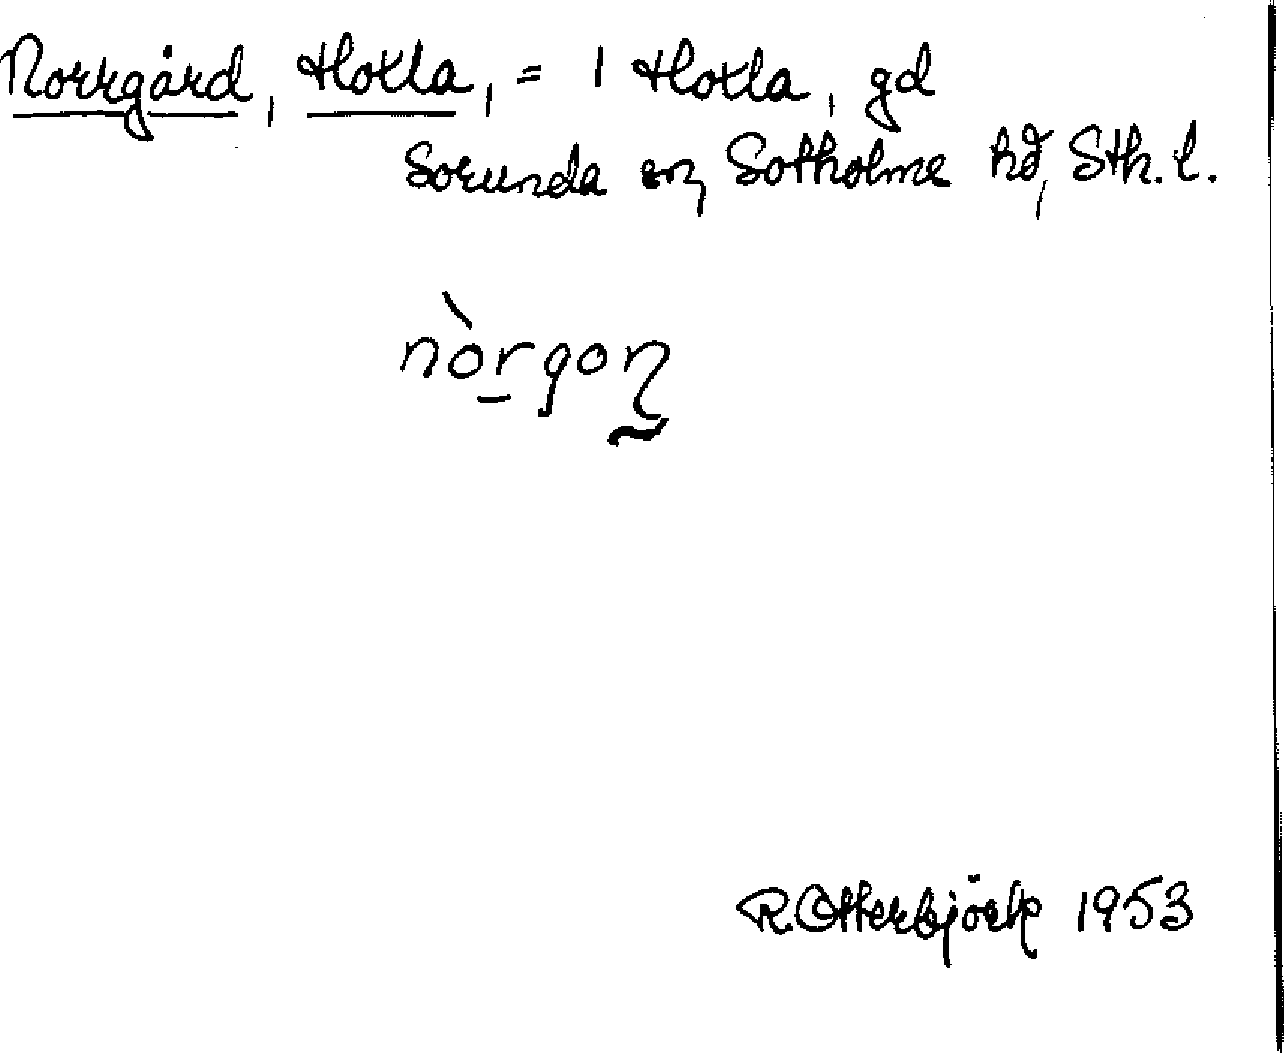 Norrgård, Hoxla, = 1 Hoxla, gd
Sorunda sn, Sotholms hd, Sth. l.
nòrgoɳ
R. Otterbjörk 1953